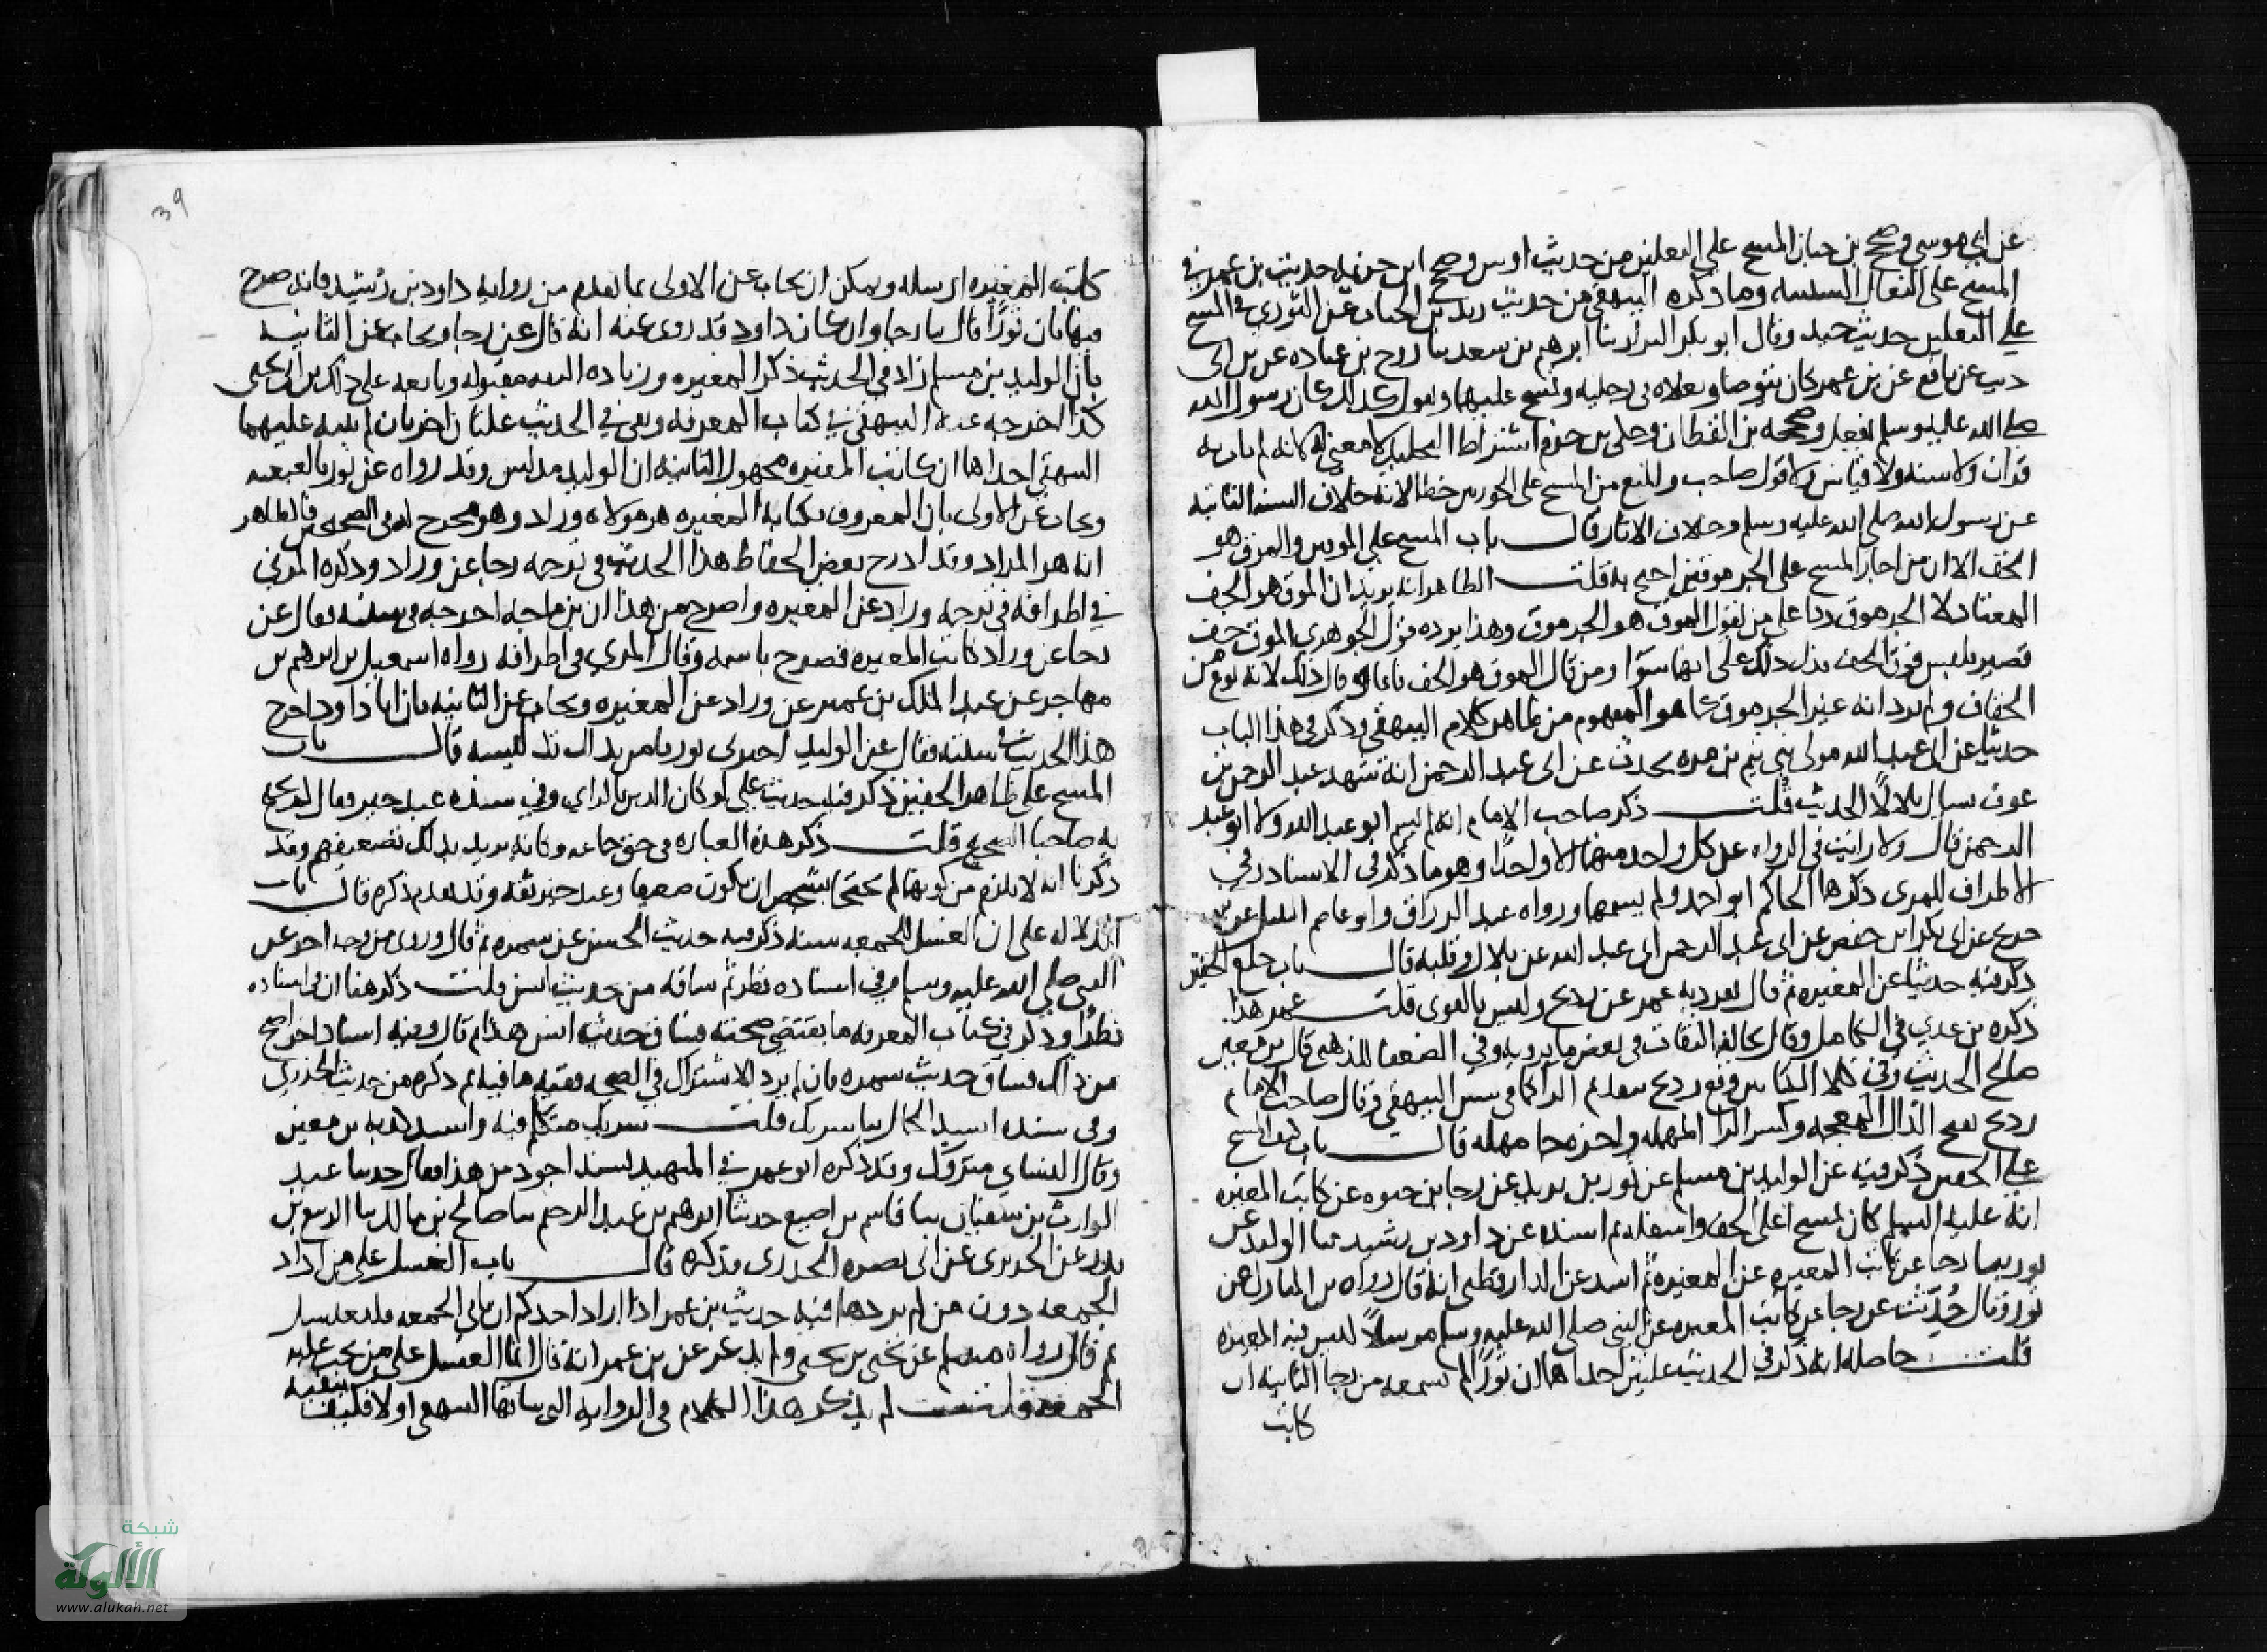 عن ابي موسى وصحح بن حبان المسح على النعلين من حديث اوس وصحح ابن خزيمه حديث بن عمر في
المسح على النعال السبتيه وما ذكره البيهقي من حديث زيد بن الحباب عن الثوري في المسح
على النعلين حديث جيد وقال ابو بكر البزار ثنا ابرهيم بن سعد ثنا روح بن عباده عن بن ابي
ذيب عن نافع عن بن عمر كان يتوضا ونعلاه في رجليه ويمسح عليهما ويقول كذلك كان رسول الله
صلى الله عليه وسلم يفعل وصححه بن القطان وحكى بن حزم اشتراط التجليد لا معنى له لانه لم يات به
قران ولا سنه ولا قياس ولا قول صاحب والمنع من المسح على الجوربين خطا لانه خلاف السنه الثابته
عن رسول الله صلى الله عليه وسلم وخلاف الاثار قال باب المسح على الموقين والموق هو
الخف الا ان من اجاز المسح على الجرموقين احتج به قلت الظاهر انه يريد ان الموق هو الخف
المعتاد لا الجرموق ردا على من يقول الموق هو الجرموق وهذا يرده قول الجوهري الموق خف
قصير يلبس فوق الخف يدل ذلك على انهما سوآ ومن قال الموق هو الخف فانما قال ذلك لانه نوع من
الخفاف ولم يرد انه غير الجرموق كما هو المفهوم من ظاهر كلام البيهقي وذكر في هذا الباب
حديثا عن ابي عبد الله مولى بني تيم بن مره يحدث عن ابي عبد الرحمن انه شهد عبد الرحمن بن
عوف يسال بلالاً الحديث قلت ذكر صاحب الامام انه لم يسم ابو عبد الله ولا ابو عبد
الرحمن قال ولا رايت في الرواه عن كل واحد منهما الا واحدًا وهو ما ذكر في الاسناد وفي
الاطراف للمزي ذكرهما الحاكم ابو احمد ولم يسمهما ورواه عبد الرزاق وابو عاصم النبيل عن بن
جريج عن ابي بكر ابن حفص عن ابي عبد الرحمن ابي عبد الله عن بلال وقلبه قال باب خلع الخفين
ذكر فيه حديثا عن المغيره ثم قال تفرد به عمر عن رديح وليس بالقوى قلت عمر هذا
ذكره بن عدي في الكامل وقال يخالفه الثقات في بعض ما يرويه وفي الضعفا للذهبي قال بن معين
صالح الحديث وفي كلا الكتابين وقع رديح بتقديم الراكما في سنن البيهقي وقال صاحب الامام
ردح بفتح الذال المعجمه وكسر الرا المهمله واخره حا مهمله قال باب كيف المسح
على الخفين ذكر فيه عن الوليد بن مسلم عن ثور بن يزيد عن رجا بن حيوه عن كاتب المغيره
انه عليه السلم كان يمسح اعلى الخف واسفله ثم اسنده عن داود بن رشيد ثنا الوليد عن
ثور ثنا رجا عن كاتب المغيره عن المغيره ثم اسند عن الدارقطني انه قال رواه بن المبارك عن
ثور وقال حُدّثت عن رجا عن كاتب المغيره عن النبي صلى الله عليه وسلم مرسلاً ليس فيه المغيره
قلت حاصله انه ذكر في الحديث علتين احداهما ان ثورًا لم يسمعه من رجا الثانيه ان
كاتب
39
كاتب المغيره ارسله ويمكن ان يجاب عن الاولى بما تقدم من روايه داود بن رُشيد فانه صرح
فيها بان ثورًا قال ثنا رجا وان كان داود قد روى عنه انه قال عن رجا ويجاب عن الثانيه
بان الوليد بن مسلم زاد في الحديث ذكر المغيره وزياده الثقه مقبوله وتابعه على ذلك بن ابي يحيى
كذا اخرجه عنه البيهقي في كتاب المعرفه وبقى في الحديث علتان اخريان لم ينبه عليهما
البيهقي احداهما ان كاتب المغيره مجهول الثانيه ان الوليد مدلس وقد رواه عن ثور بالعنعنه
ويجاب عن الاولى بان المعروف بكتابه المغيره هو مولاه وراد وهو مخرج له في الصحيحين فالظاهر
انه هو المراد وقد ادرج بعض الحفاظ هذا الحديث في ترجمه رجا عن وراد وذكره المزي
في اطرافه في ترجمه وراد عن المغيره واصرح من هذا ان بن ماجه اخرجه في سننه فقال عن
رجا عن وراد كاتب المغيره فصرح باسمه وقال المزي في اطرافه رواه اسمعيل بن ابرهيم بن
مهاجر عن عبد الملك بن عمير عن وراد عن المغيره ويجاب عن الثانيه بان ابا داود اخرج
هذا الحديث في سننه فقال عن الوليد اخبرني ثور فامن بذلك تدليسه قال باب
المسح على ظاهر الخفين ذكر فيه حديث علي لو كان الدين بالراي وفي سنده عبد خير وقال لم يحتج
به صاحبا الصحيح قلت ذكر هذه العباره في حق جماعه وكانه يريد بذلك تضعيفهم وقد
ذكرنا انه لا يلزم من كونهما لم يحتجا بشخص ان يكون ضعيفا وعبد خير ثقه وقد تقدم ذكره قال باب
الدلاله على ان الغسل للجمعه سنه ذكر فيه حديث الحسن عن سمره ثم قال وروى من وجه اخر عن
النبي صلى الله عليه وسلم وفي اسناده نظر ثم ساقه من حديث انس قلت ذكر هنا ان في اسناده
نظرًا وذكر في كتاب المعرفه ما يقتضي صحته فساق حديث انس هذا ثم قال وفيه اسناد اخر اصح
من ذلك فساق حديث سمره فان لم يرد الاشتراك في الصحه ففيه ما فيه ثم ذكره من حديث الخدري
وفي سنده اسيد الجمال ثنا شريك قلت شريك متكلم فيه واسيد كذبه بن معين
وقال النساي متروك وقد ذكره ابو عمر في التمهيد بسند اجود من هذا فقال حدثنا عبد
الوارث بن سفيان ثنا قاسم بن اصبغ حدثنا ابرهيم بن عبد الرحيم ثنا صالح بن مالك ثنا الربيع بن
بدر عن الجريري عن ابي نضره الخدري فذكره قال باب الغسل على من اراد
الجمعه دون من لم يردها فيه حديث بن عمر اذا اراد احدكم ان ياتي الجمعه فليغتسل
ثم قال رواه مسلم عن يحيى بن يحيى ولم يذكر عن بن عمر انه قال انما الغسل على من يجب عليه
الجمعه قلت لم يذكر هذا الكلام في الروايه التي ساقها البيهقي اولا فكيف ينفيه
شبكة
الألوكة
www.alukah.net